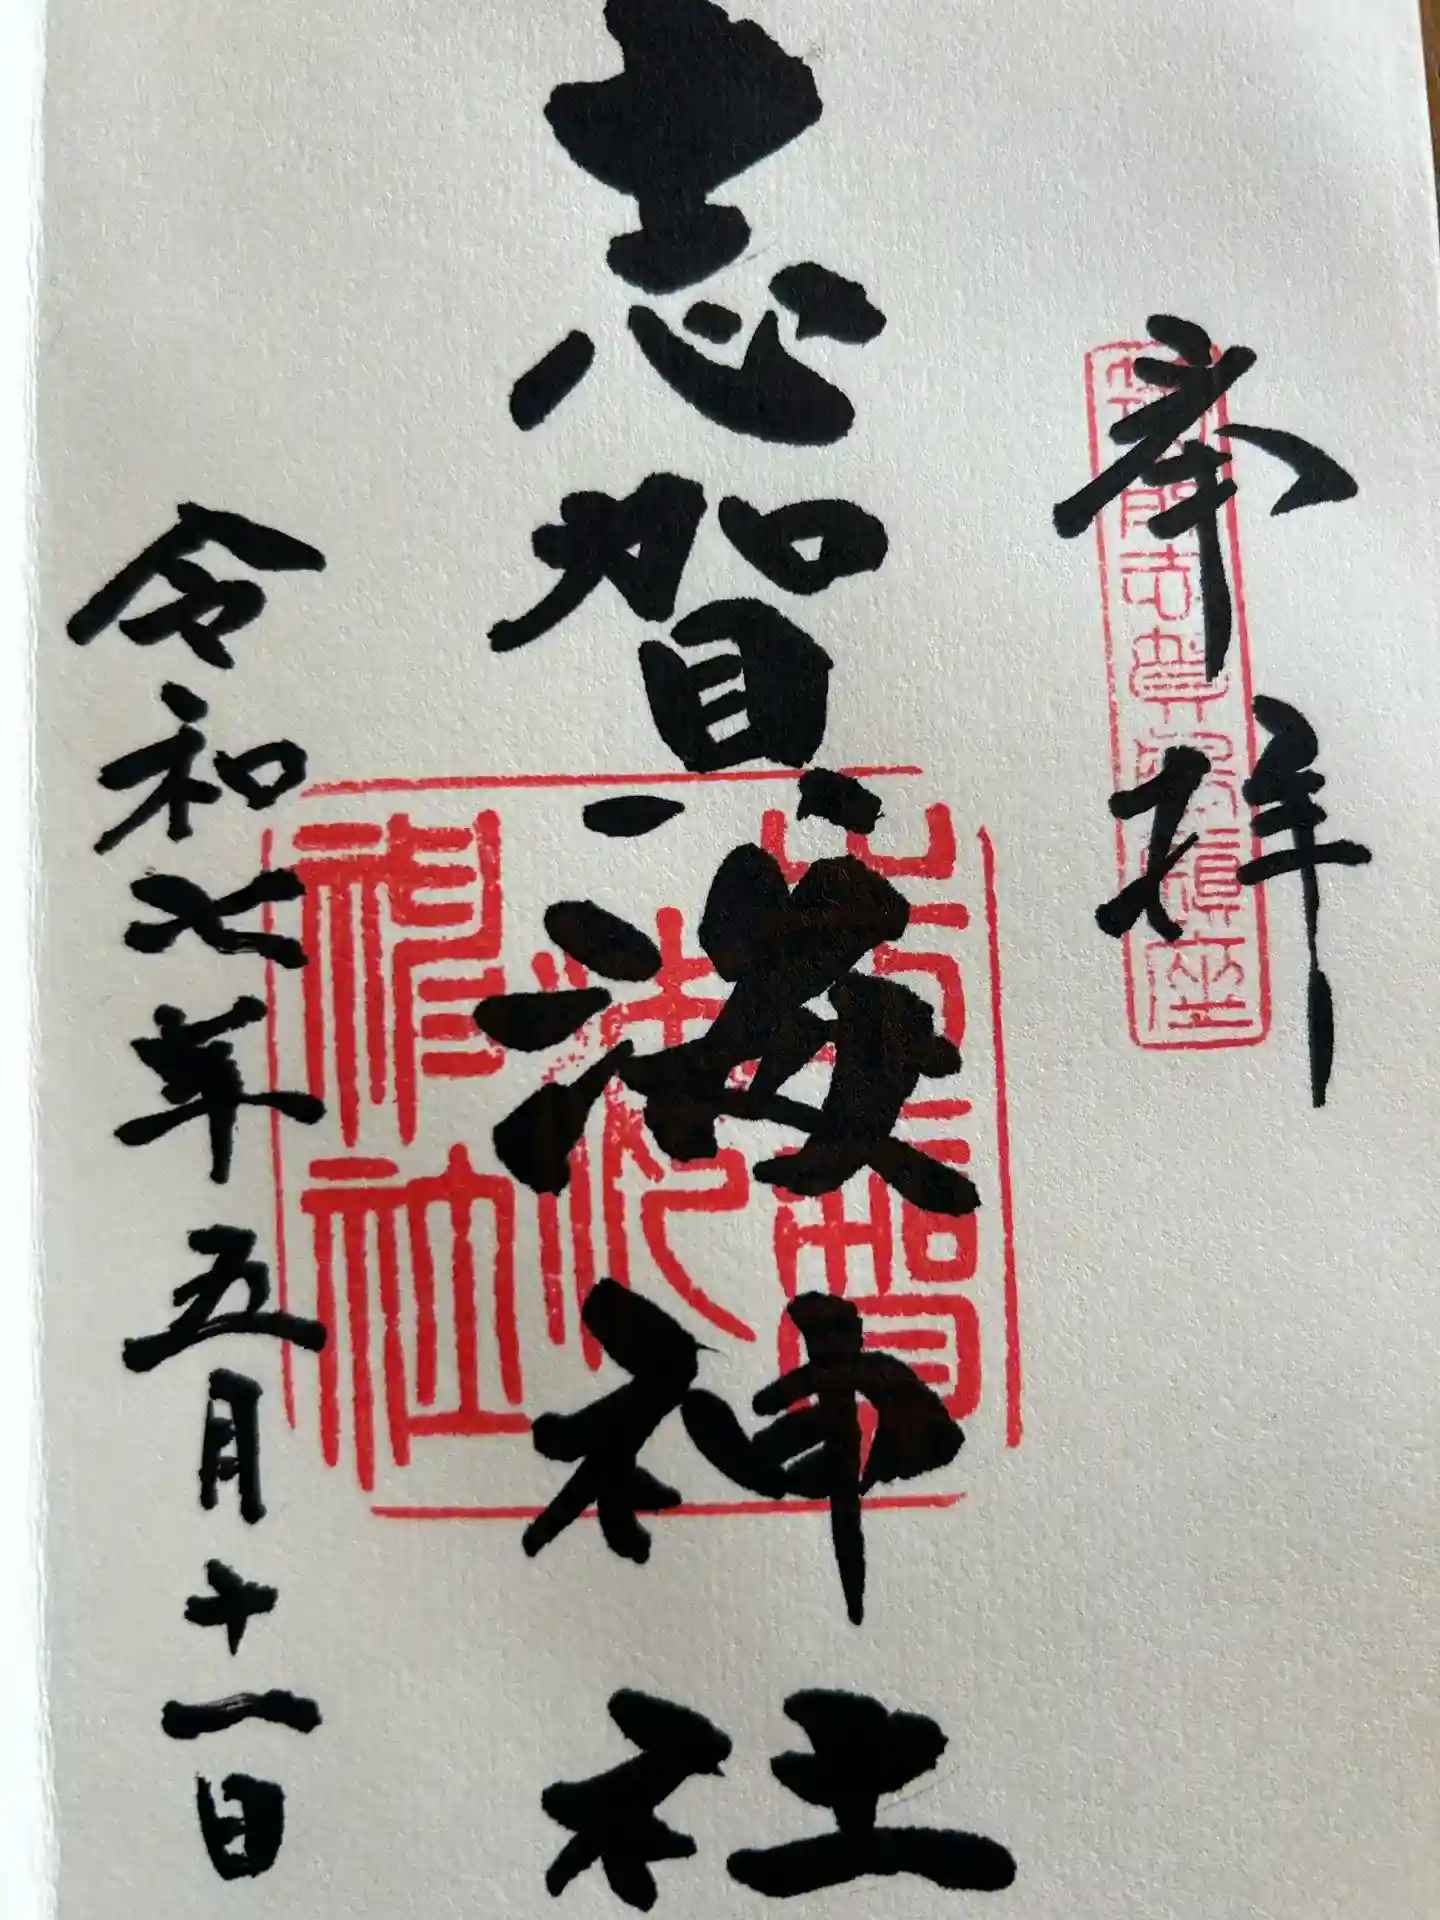 奉拝
志賀海神社
志賀海神社
令和七年五月十一日